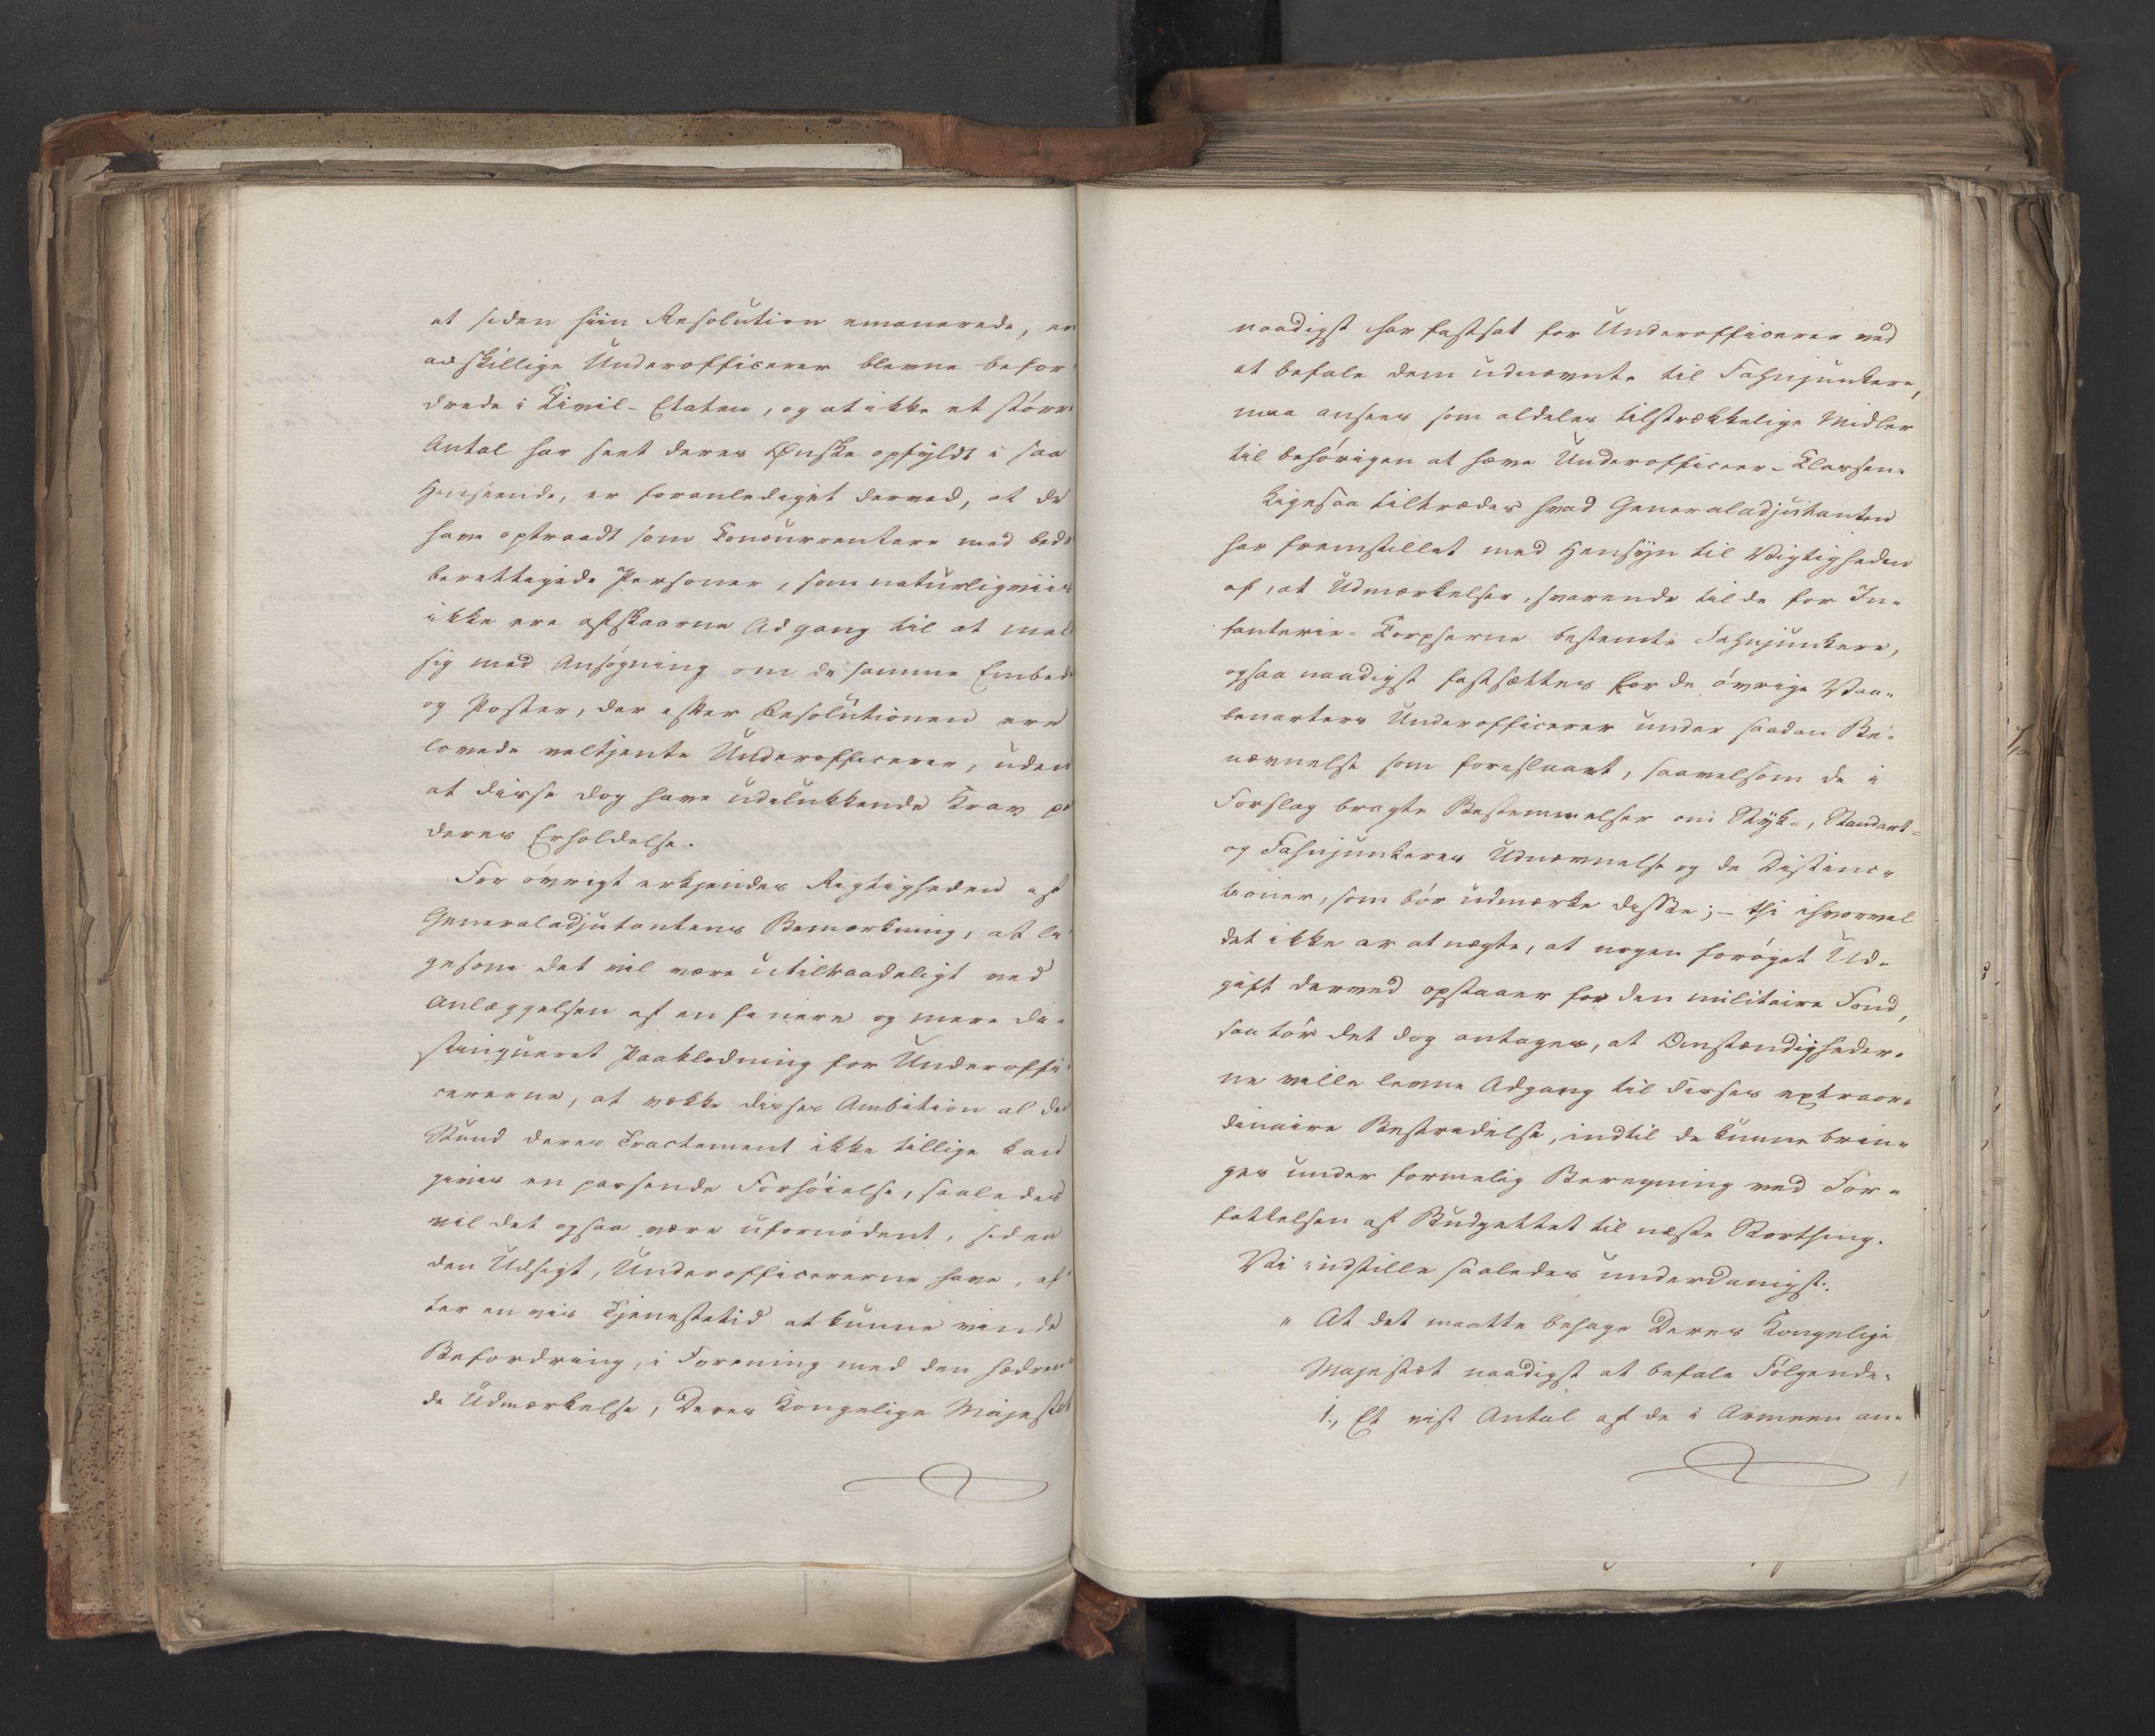 at siden hiin Resolution emanerede, er
adskillige Underofficerer blevne befor
drede i Civil-Etaten, og at ikke et större
Antal har seet deres Ønske opfyldt i saa
Henseende, er foranlediget derved, at de
have optraadt som Concurrentere med bedr
berettigede Personer, som naturligviis
ikke ere afskaarne Adgang til at mel
sig med Ansøgning om de samme Embed
og Poster, der efter Resolutionen ere
lovede veltjente Underofficerer, uden
at disse dog have udelukkende Krav p
deres Erholdelse.
For övrigt erkjendes Rigtigheden af
Generaladjutantens Bemærkning, at li
gesom det vil være utilraadeligt ved
Anlæggelsen af en finere og mere di-
stingueret Paaklædning for Underoffi
cererne, at vække disses Ambition al den
Stund deres Tractement ikke tillige kan
gives en passende Forhöielse, saaledes
vil det ogsaa være ufornödent, siden
den Udsigt, Underofficererne have, ef
ter en vis Tjenestetid at kunne vinde
Befordring, i Forening med den hædren
de Udmærkelse, Deres Kongelige Majestæt
naadigst har fastsat for Underofficerer ved
at befale dem udnævnte til Fahnjunkere,
maa ansees som aldeles tilstrækkelige Midler
til behörigen at hæve Underofficeer-Classen.
Ligesaa tiltrædes hvad Generaladjutanten
har fremstillet med Hensyn til Vigtigheden
af, at Udmærkelser, svarende til de for In-
fanterie-Corpserne bestemte Fahnjunkere,
ogsaa naadigst fastsættes for de övrige Vaa-
benarters Underofficerer under saadan Be-
nævnelse som foreslaaet, saavelsom de i
Forslag bragte Bestemmelser om Styk-, Standart-
og Fahnjunkeres Udnævnelse og de Distinc-
tioner, som bör udmærke disse; - thi ihvorvel
det ikke er at nægte, at nogen foröget Ud-
gift derved opstaaer for den militaire Fond,
saa tör det dog antages, at Omstændigheder-
ne ville levne Adgang til disses extraor-
dinaire Bestridelse, indtil de kunne brin-
ges under formelig Beregning ved For-
fattelsen af Budgettet til næste Storthing.
Vi indstille saaledes underdanigst:
" At det maatte behage Deres Kongelige
Majestæt naadigst at befale Fölgende:
1., Et vist Antal af de i Armeen an-